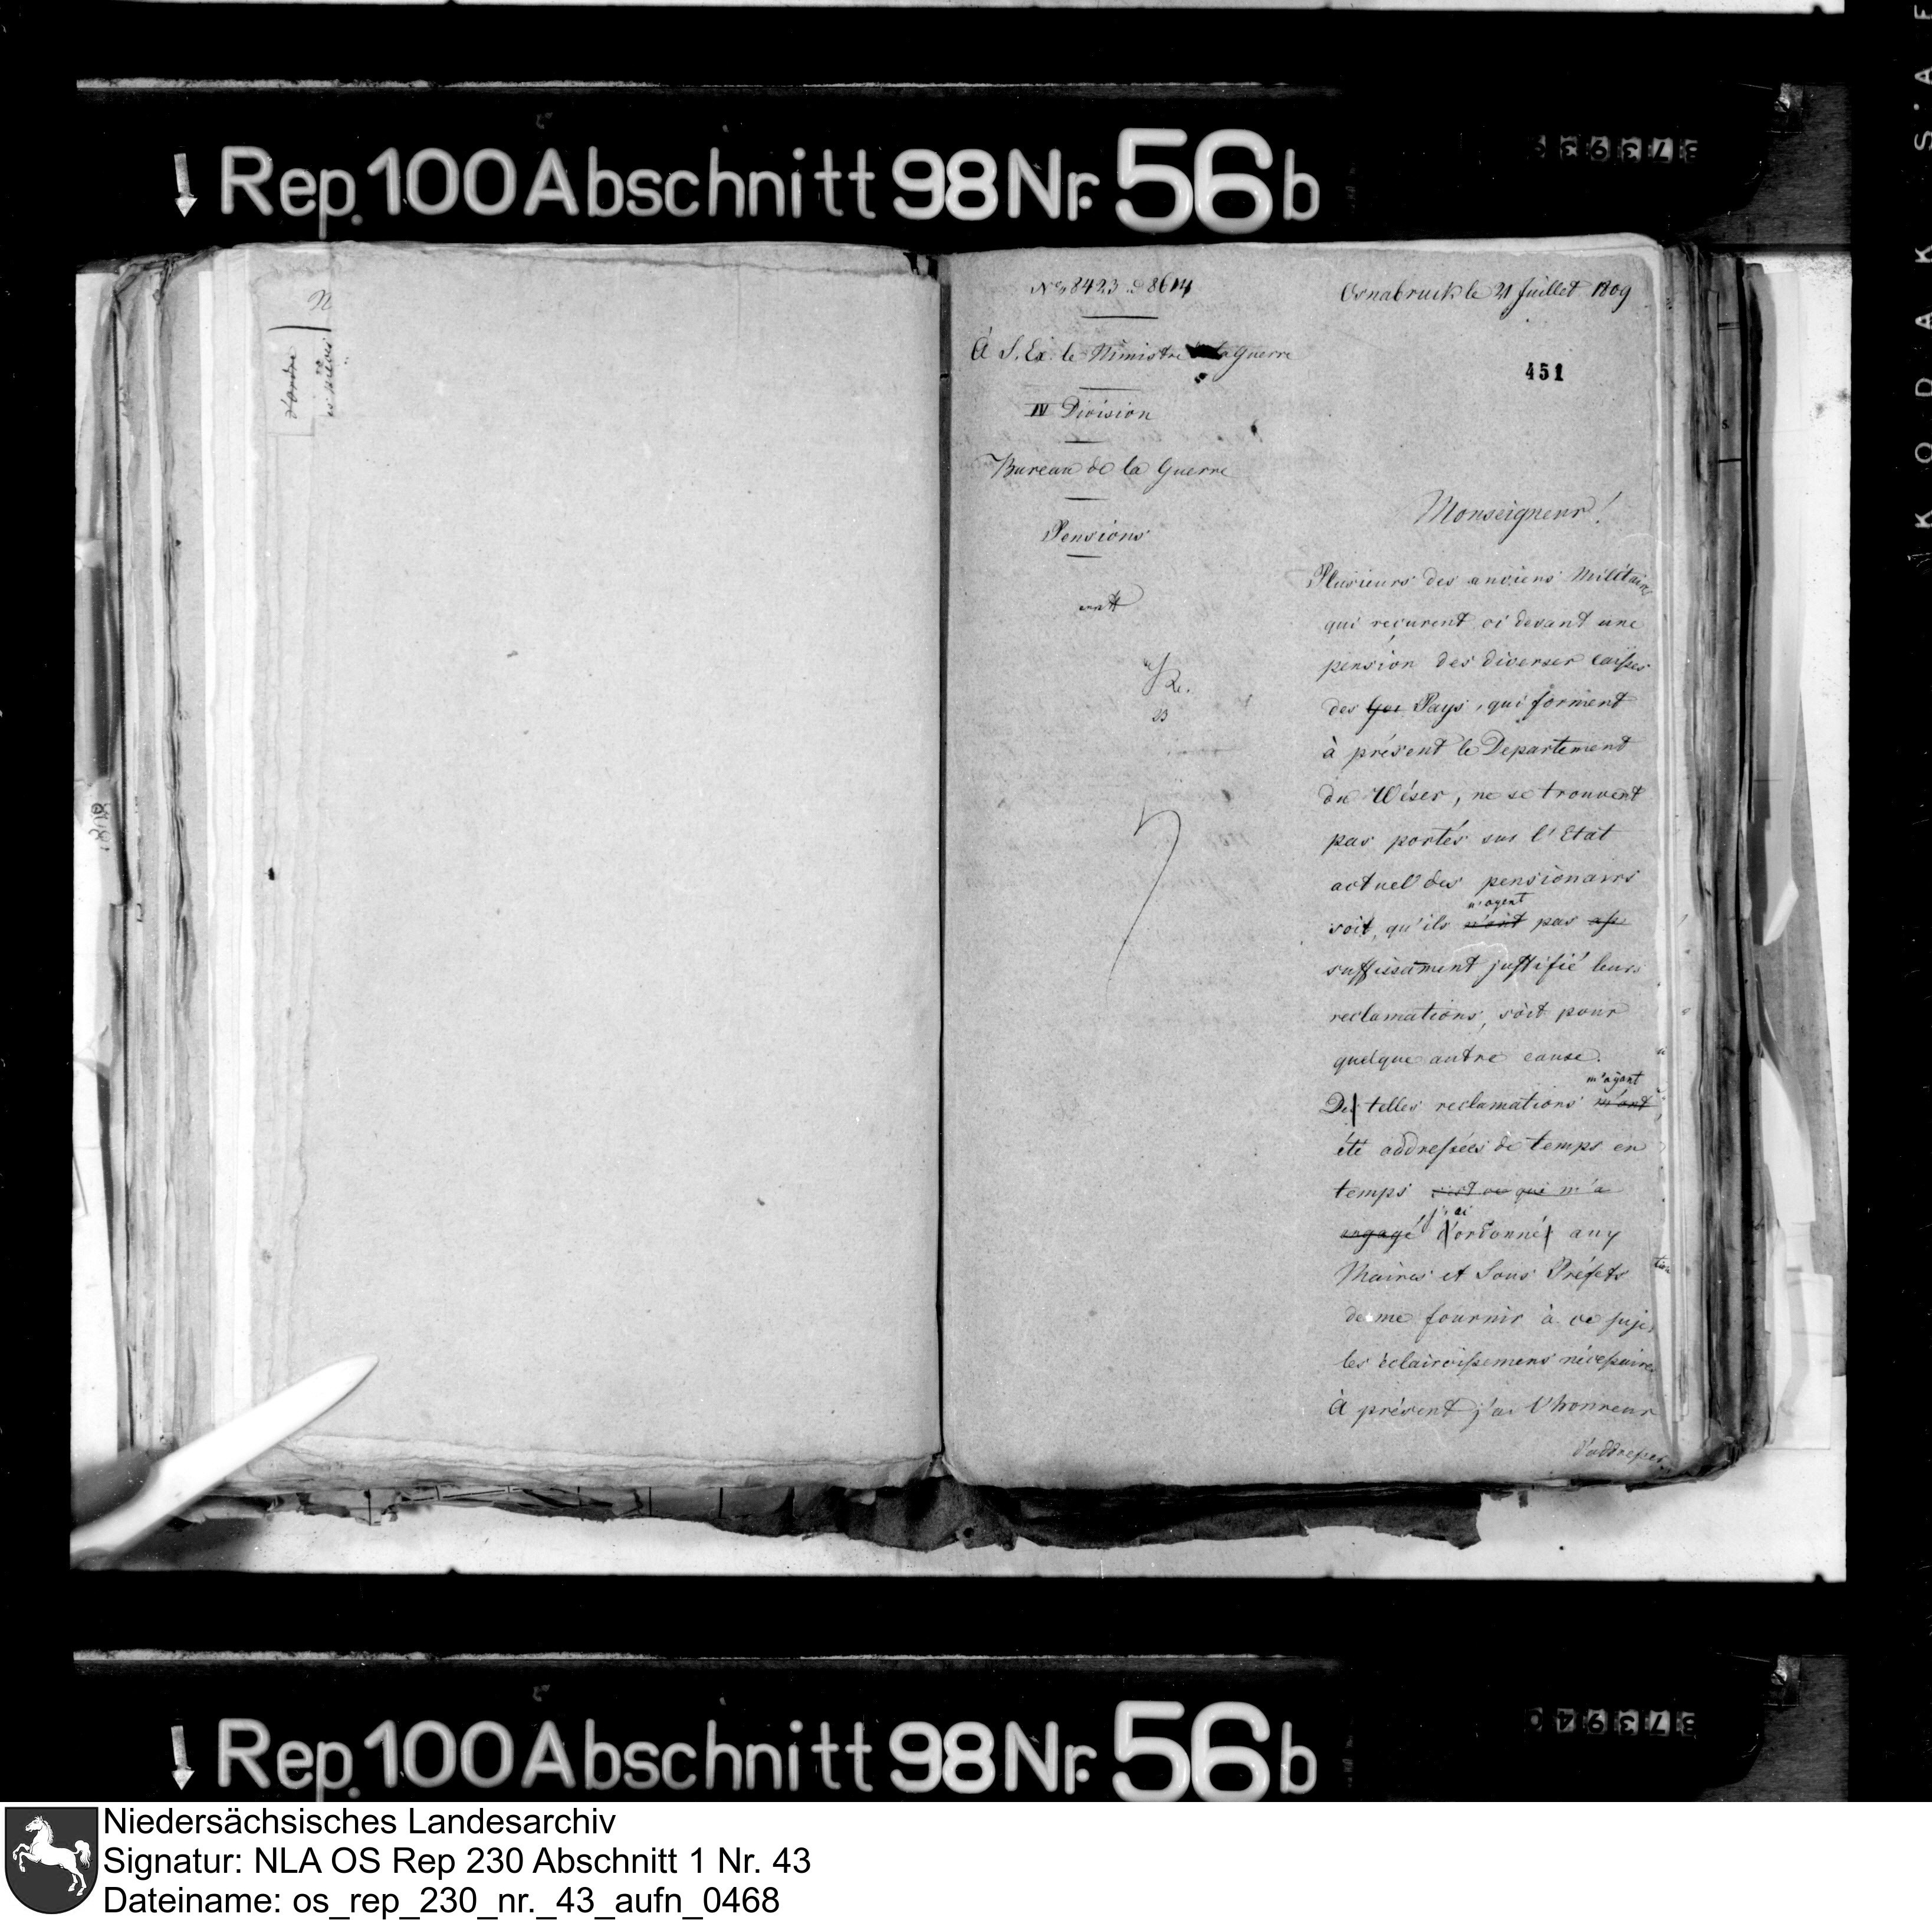 Rep. 100 Abschnitt 98 Nr. 56 b
d'ordre
N
es pièces
No 8423 & 8614
À S. Ex. le Ministre de la Guerre
IV Division
Bureau de la Guerre
Pensions
Osnabruck le 21 Juillet 1809
451
Monseigneur!
Plusieurs des anciens Militairs
qui reçurent ci devant une
pension des diverser caisses
des Pays, qui forment
à présent le Departement
du Wéser, ne se trouvent
pas portés sur l'Etat
actuel des pensionairs
n'ayent
soit, qu'ils n'ont pas ass
suffissament justifié leurs
reclamations, soit pour
quelque autre cause.
m'ayant
De telles reclamations m'ont
été addressées de temps en
temps c'est ce qui m'a
j'ai
engagé d'ordonné aux
Maires et Sous Préfets
de me fournir à ce sujet
les éclaircissemens nécessaires
À présent j'ai l'honneur
d'addresser
Rep. 100 Abschnitt 98 Nr. 56 b
KODAK SAF
Niedersächsisches Landesarchiv
Signatur: NLA OS Rep 230 Abschnitt 1 Nr. 43
Dateiname: os_rep_230_nr._43_aufn_0468